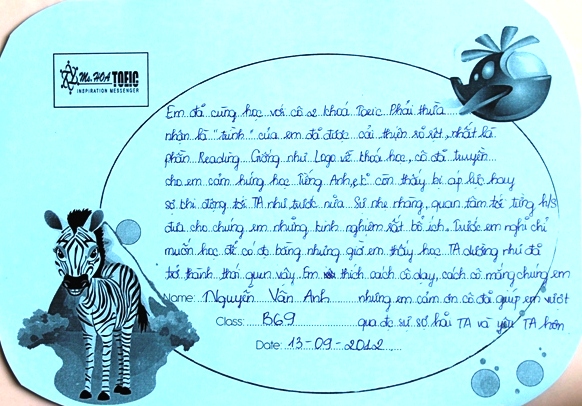 Ms. HOA TOEIC
INSPIRATION MESSENGER
Em đã cùng học với cô 2 khoá Toeic. Phải thừa
nhận là "trình" của em đã được cải thiện rõ rệt, nhất là
phần Reading. Giống như Logo về khoá học, cô đã truyền
cho em cảm hứng học Tiếng Anh, ít còn thấy bị áp lực hay
sợ khi động tới TA như trước nữa. Sự nhẹ nhàng, quan tâm tới từng h/s
đưa cho chúng em những kinh nghiệm rất bổ ích. Trước em nghĩ chỉ
muốn học để có đc bằng nhưng giờ em thấy học TA dường như đã
trở thành thói quen vậy. Em thích cách cô dạy, cách cô mắng chúng em
Name: Nguyễn Vân Anh nhưng em cảm ơn cô đã giúp em vượt
Class: B69 qua đc sự sợ hãi TA và yêu TA hơn
Date: 13-09-2012